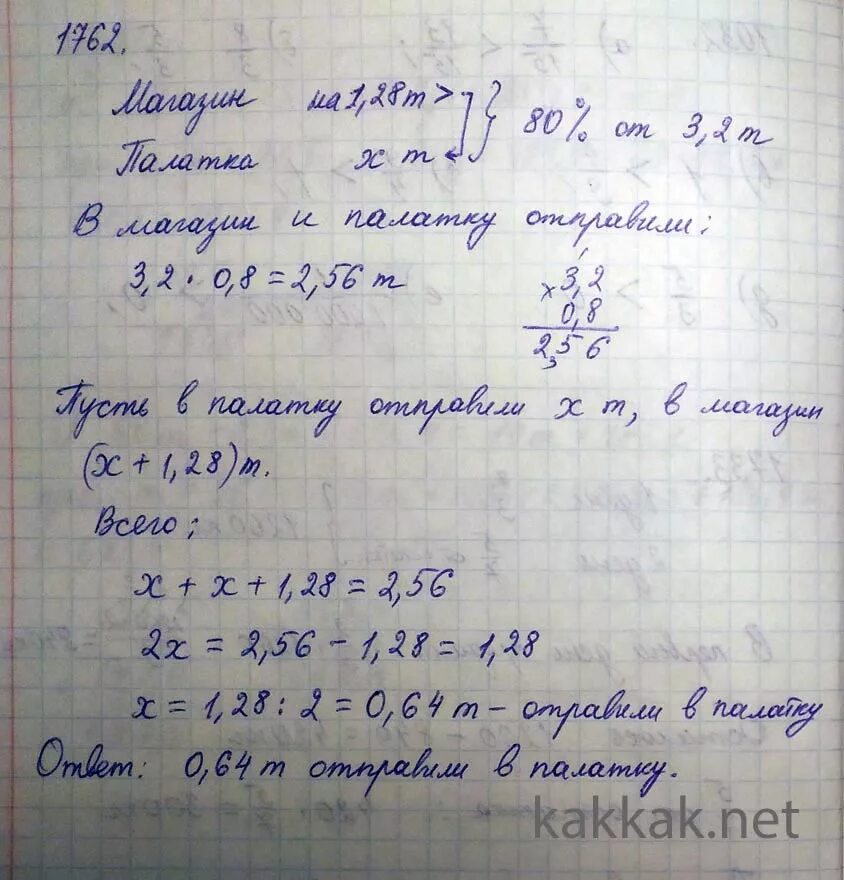 1762.
Магазин на 1,28 т > } 80% от 3,2 т
Палатка х т
В магазин и палатку отправили:
3,2 · 0,8 = 2,56 т
× 3,2
0,8
2,56
Пусть в палатку отправили х т, в магазин
(х + 1,28) т.
Всего:
х + х + 1,28 = 2,56
2х = 2,56 − 1,28 = 1,28
х = 1,28 : 2 = 0,64 т − отравили в палатку
Ответ: 0,64 т отправили в палатку.
kakkak.net